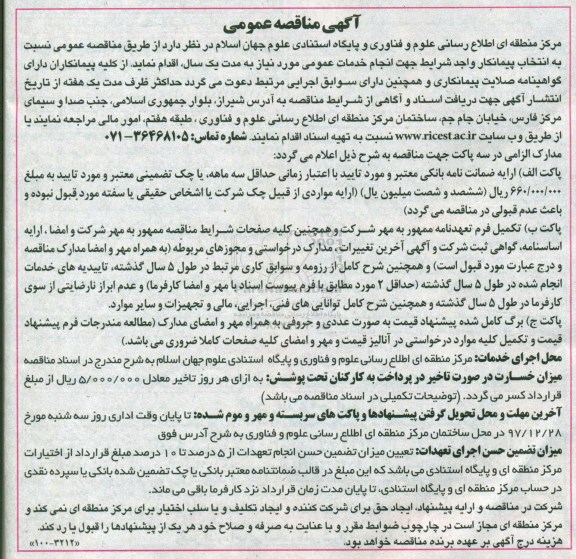 آگهی مناقصه عمومی
مرکز منطقه ای اطلاع رسانی علوم و فناوری و پایگاه استنادی علوم جهان اسلام در نظر دارد از طریق مناقصه عمومی نسبت
به انتخاب پیمانکار واجد شرایط جهت انجام خدمات عمومی مورد نیاز به مدت یک سال، اقدام نماید. از کلیه پیمانکاران دارای
گواهینامه صلایت پیمانکاری و همچنین دارای سوابق اجرایی مرتبط دعوت می گردد حداکثر ظرف مدت یک هفته از تاریخ
انتشار آگهی جهت دریافت اسناد و آگاهی از شرایط مناقصه به آدرس شیراز، بلوار جمهوری اسلامی، جنب صدا و سیمای
مرکز فارس، خیابان جام جم، ساختمان مرکز منطقه ای اطلاع رسانی علوم و فناوری ، طبقه هفتم، امور مالی مراجعه نمایند یا
از طریق وب سایت www.ricest.ac.ir نسبت به تهیه اسناد اقدام نمایند. شماره تماس: ۳۶۴۶۸۱۰۵-۰۷۱
مدارک الزامی در سه پاکت جهت مناقصه به شرح ذیل اعلام می گردد:
پاکت الف) ارایه ضمانت نامه بانکی معتبر و مورد تایید با اعتبار زمانی حداقل سه ماهه، یا چک تضمینی معتبر و مورد تایید به مبلغ
۶۶۰/۰۰۰/۰۰۰ ریال (ششصد و شصت میلیون یال) (ارایه مواردی از قبیل چک شرکت یا اشخاص حقیقی یا سفته مورد قبول نبوده و
باعث عدم قبولی در مناقصه می گردد)
پاکت ب) تکمیل فرم تعهدنامه ممهور به مهر شرکت و همچنین کلیه صفحات شرایط مناقصه ممهور به مهر شرکت و امضا ، ارایه
اساسنامه، گواهی ثبت شرکت و آگهی آخرین تغییرات ، مدارک درخواستی و مجوزهای مربوطه (به همراه مهر و امضا مدارک مناقصه
و درج عبارت مورد قبول است) و همچنین شرح کامل از رزومه و سوابق کاری مرتبط در طول ۵ سال گذشته، تاییدیه های خدمات
انجام شده در طول ۵ سال گذشته (حداقل ۲ مورد مطابق با فرم پیوست اسناد با مهر و امضا کارفرما) و عدم ابراز نارضایتی از سوی
کارفرما در طول ۵ سال گذشته و همچنین شرح کامل توانایی های فنی، اجرایی، مالی و تجهیزات و سایر موارد.
پاکت ج) برگ کامل شده پیشنهاد قیمت به صورت عددی و حروفی به همراه مهر و امضای مدارک (مطالعه مندرجات فرم پیشنهاد
قیمت و تکمیل کلیه موارد درخواستی در آنالیز قیمت و مهر و امضای کلیه صفحات کاملا ضروری می باشد.)
محل اجرای خدمات: مرکز منطقه ای اطلاع رسانی علوم و فناوری و پایگاه استنادی علوم جهان اسلام به شرح مندرج در اسناد مناقصه
میزان خسارت در صورت تاخیر در پرداخت به کارکنان تحت پوشش: به ازای هر روز تاخیر معادل ۵/۰۰۰/۰۰۰ ریال از مبلغ
قرارداد کسر می گردد. (توضیحات تکمیلی در اسناد مناقصه می باشد)
آخرین مهلت و محل تحویل گرفتن پیشنهادها و پاکت های سربسته و مهر و موم شده: تا پایان وقت اداری روز سه شنبه مورخ
۹۷/۱۲/۲۸ در محل ساختمان مرکز منطقه ای اطلاع رسانی علوم و فناوری به شرح آدرس فوق
میزان تضمین حسن اجرای تعهدات: تعیین میزان تضمین حسن انجام تعهدات از ۵ درصد تا ۱۰ درصد مبلغ قرارداد از اختیارات
مرکز منطقه ای و پایگاه استنادی می باشد که این مبلغ در قالب ضمانتنامه معتبر بانکی یا چک تضمین شده بانکی یا سپرده نقدی
در حساب مرکز منطقه ای و پایگاه استنادی، تا پایان مدت زمان قرارداد نزد کارفرما باقی می ماند.
شرکت در مناقصه و ارایه پیشنهاد، ایجاد حق برای شرکت کننده و ایجاد تکلیف و یا سلب اختیار برای مرکز منطقه ای نمی کند و
مرکز منطقه ای مجاز است در چارچوب ضوابط مقرر و با عنایت به صرفه و صلاح خود هر یک از پیشنهادها را قبول یا رد کند.
هزینه درج آگهی بر عهده برنده مناقصه خواهد بود. «۱۰۰-۳۲۱۲»